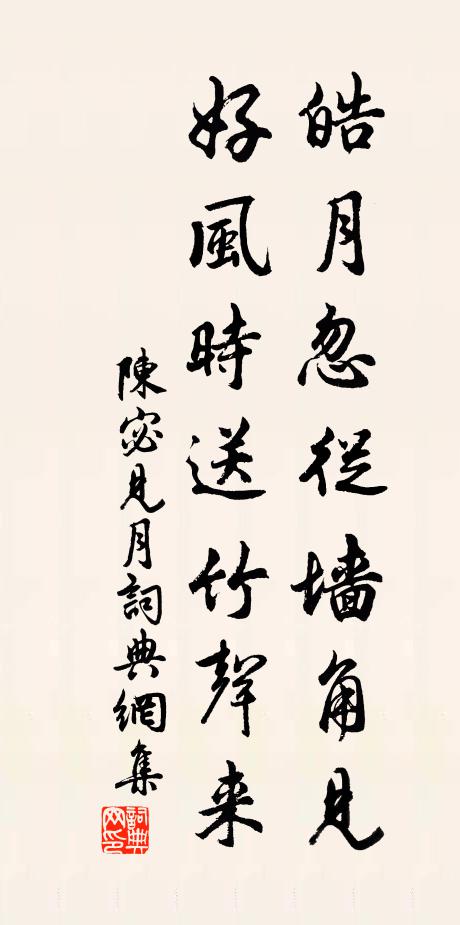 皓月忽從墙角見
好風時送竹聲来
陳宓見月詞典網集
詞典網印